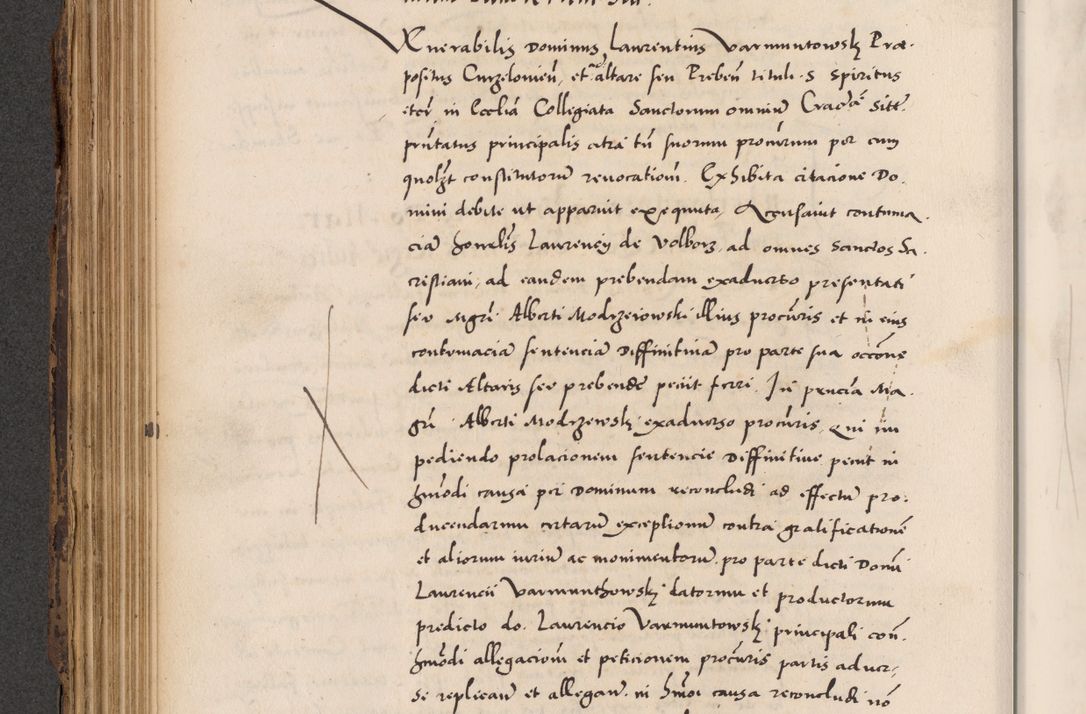 Venerabilis Dominus Laurentius Varmuntowsky Præ.
positus Curzelovien̄, et altare seu Preben̄ tituli S Spiritus
eter̄ in Ecclīa Collegiata Sanctorum omniū Crac̄ sitt̄
prn̄tatus principalis citra tn̄ suorum procūrum per eum
quolz̄t constitutorū revocatioīn. Exhibita citacione Do.
mini debite ut apparuit exequuta, Accusavit contuma.
ciā honelīs Laurencÿ de Volborz, ad omnes Sanctos Sa.
cristiani, ad eandem prebendam exaduerso presentati
seu Mgrī Alberti Modrzeiowski illius procūris et in eius
contumaciā sentenciā Diffinitiuā pro parte sua occōne
dicti Altaris seu prebendę petiit ferri. In pn̄cia Ma.
grī Alberti Modrzewsky exaduerso procūris, qui im
pediendo prolacionem sentencie Diffinitiue petiit in
hmōdi causa per Dominum reconcludi ad effectū pro.
ducendarum certarū exceptionū contra gratificationē
et aliorum iuriū ac monimentorū, pro parte dicti Domī
Laurencii Varmunthowsky datorum et productorum
predicto do. Laurencio Varmuntowsky principali con̄.
hmōdi allegacioīn et peticionem procūris partis aduer,
se replican̄ et allegan̄. in hmōi causa reconcludi nō